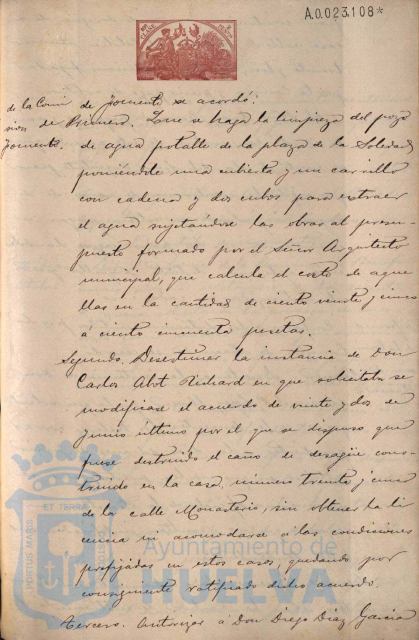 A.0.023.108*
de la Comi
sion de
Fomento.
de Fomento se acordó:
Primero. Que se haga la limpieza del pozo
de agua potable de la plaza de la Soledad
poniéndole una cubierta y un carrillo
con cadena y dos cubos para extraer
el agua sujetándose las obras al presu-
puesto formado por el Señor Arquitecto
municipal, que calcula el costo de aque
llas en la cantidad de ciento veinte y cinco
á ciento cincuenta pesetas.
Segundo. Desestimar la instancia de Don
Carlos Abot Richard en que solicitaba se
modificase el acuerdo de veinte y dos de
Junio último por el que se dispuso que
fuese destruido el caño de desagüe cons-
truido en la casa número treinta y cinco
de la calle Monasterio, sin obtener la li
cencia ni acomodarse á las condiciones
prefijadas en estos casos, quedando por
consiguiente ratificado dicho acuerdo.
Tercero. Autorizar á Don Diego Diaz Garcia
PORTUS MARIS ET TERRAE
Ayuntamiento de
HUELVA